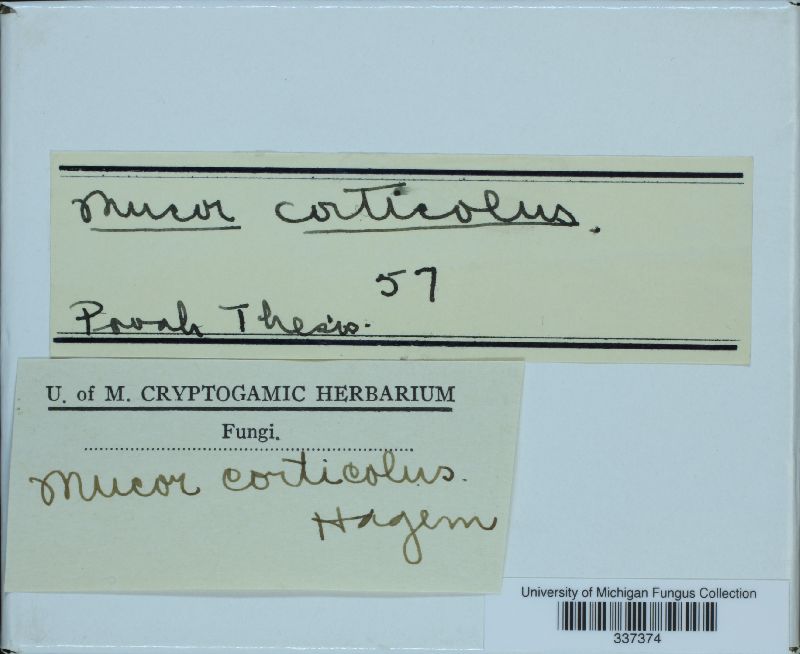 Mucor corticolus.
57
Povah Thesis.
U. of M. CRYPTOGAMIC HERBARIUM
Fungi.
Mucor corticolus.
Hagem
University of Michigan Fungus Collection
337374